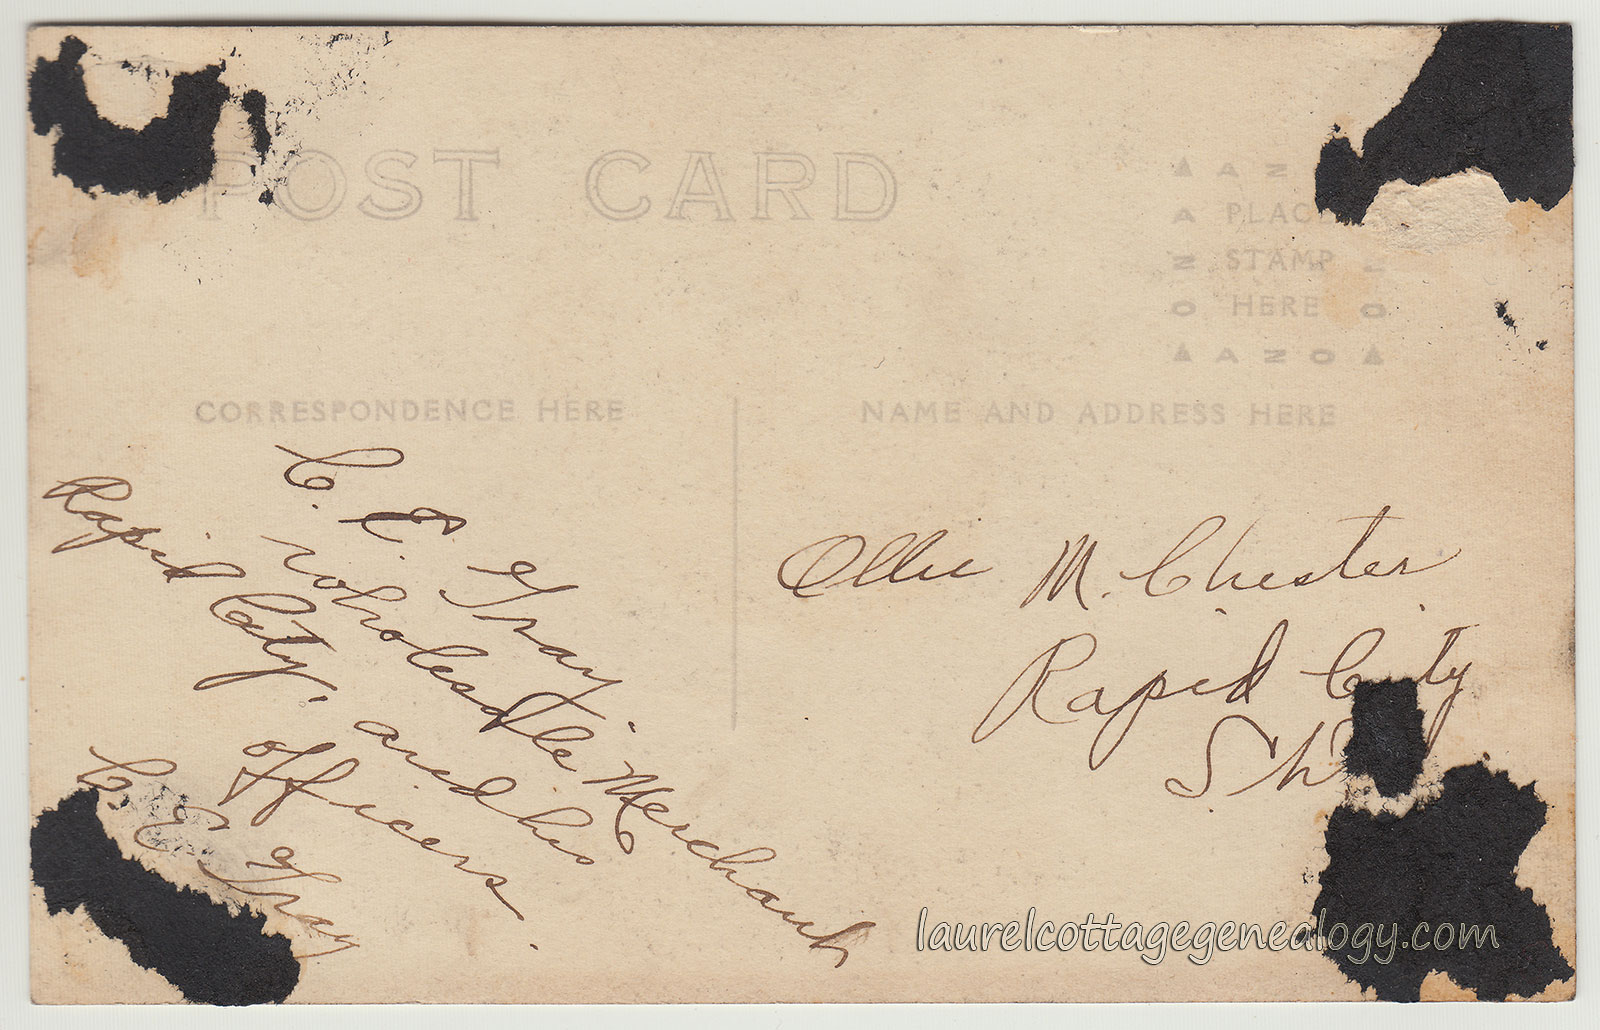 POST CARD
▲ A Z
A PLAC
N STAMP
O HERE O
▲ A N O ▲
CORRESPONDENCE HERE
NAME AND ADDRESS HERE
C. E. Gray
Wholesale Merchant
Rapid City, and his
officers.
C. E. Gray
Ollie M. Chester
Rapid City
S.
laurelcottagegenealogy.com